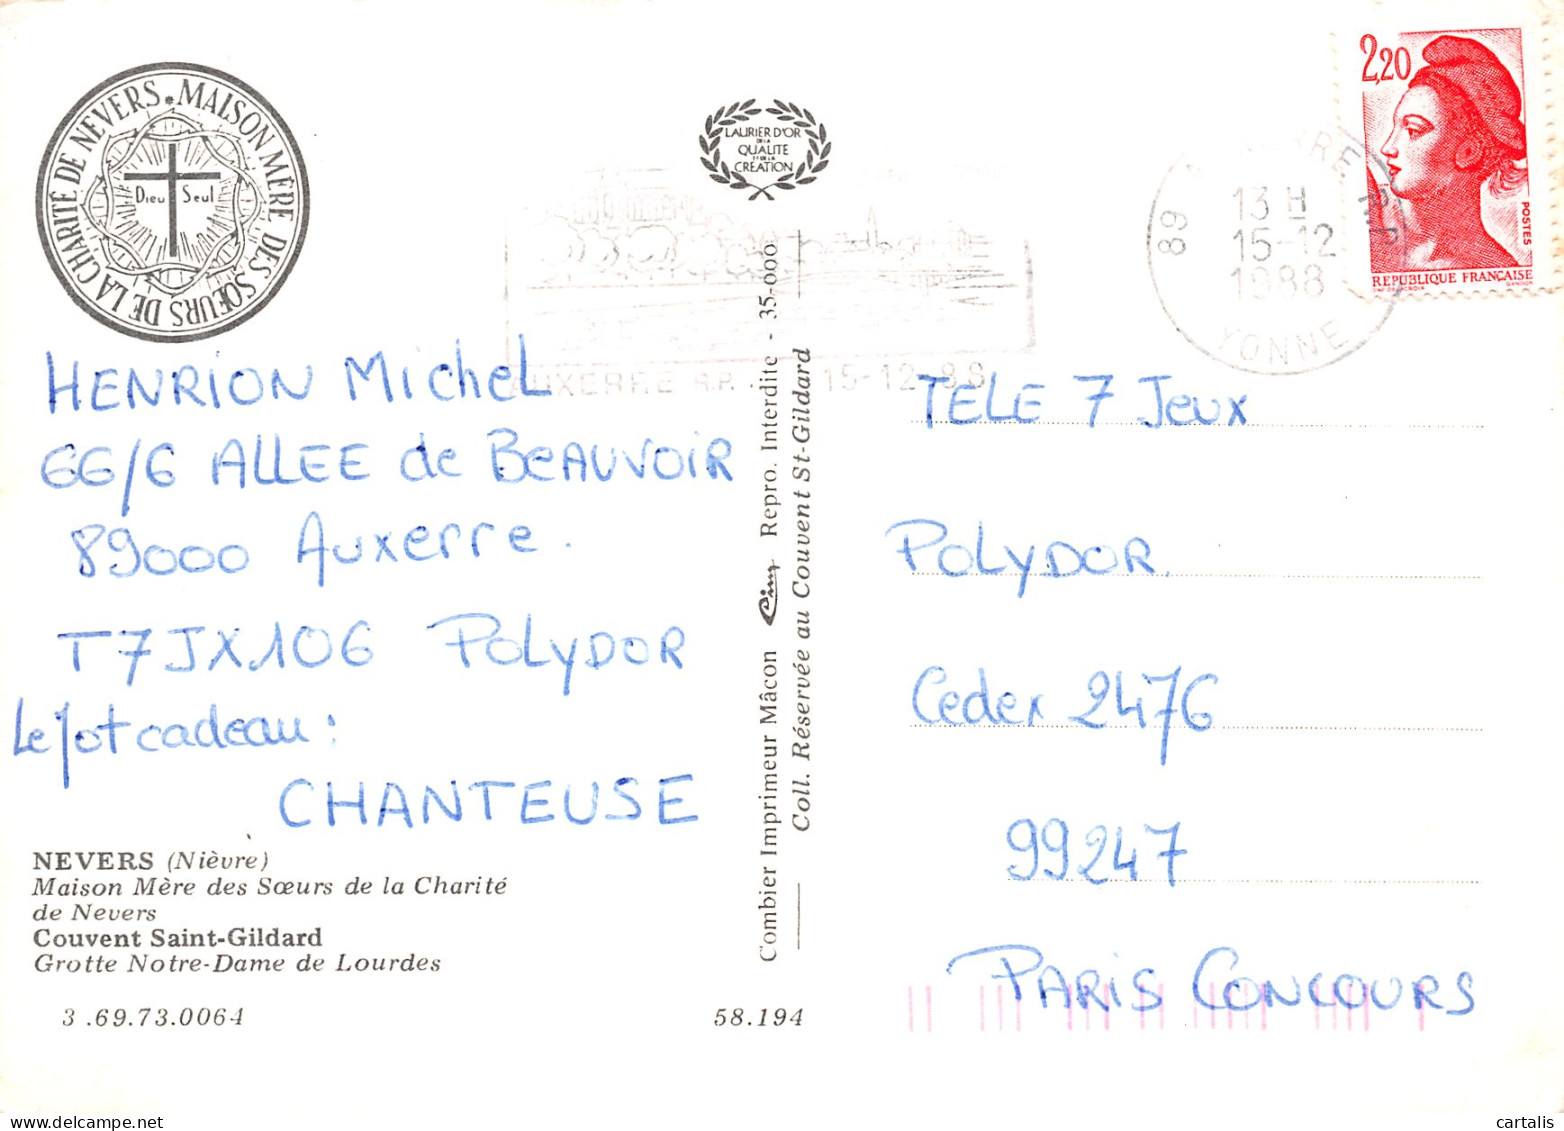 MAISON MÈRE DES SŒURS DE LA CHARITÉ DE NEVERS
Dieu Seul
LAURIER D'OR
DE LA
QUALITE
ET DE LA
CREATION
2,20
POSTES
REPUBLIQUE FRANÇAISE
13 H
15-12
1988
89
YONNE
AUXERRE R.P.
15-12-88
HENRION Michel
66/6 ALLEE de BEAUVOIR
89000 Auxerre.
T7JX106 POLYDOR
Le Mot cadeau :
CHANTEUSE
NEVERS (Nièvre)
Maison Mère des Sœurs de la Charité
de Nevers
Couvent Saint-Gildard
Grotte Notre-Dame de Lourdes
3 .69.73.0064
58.194
Combier Imprimeur Mâcon Cim Repro. Interdite - 35-000
Coll. Réservée au Couvent St-Gildard
TELE 7 Jeux
POLYDOR.
Cedex 2476
99247
PARIS CONCOURS
cartalis